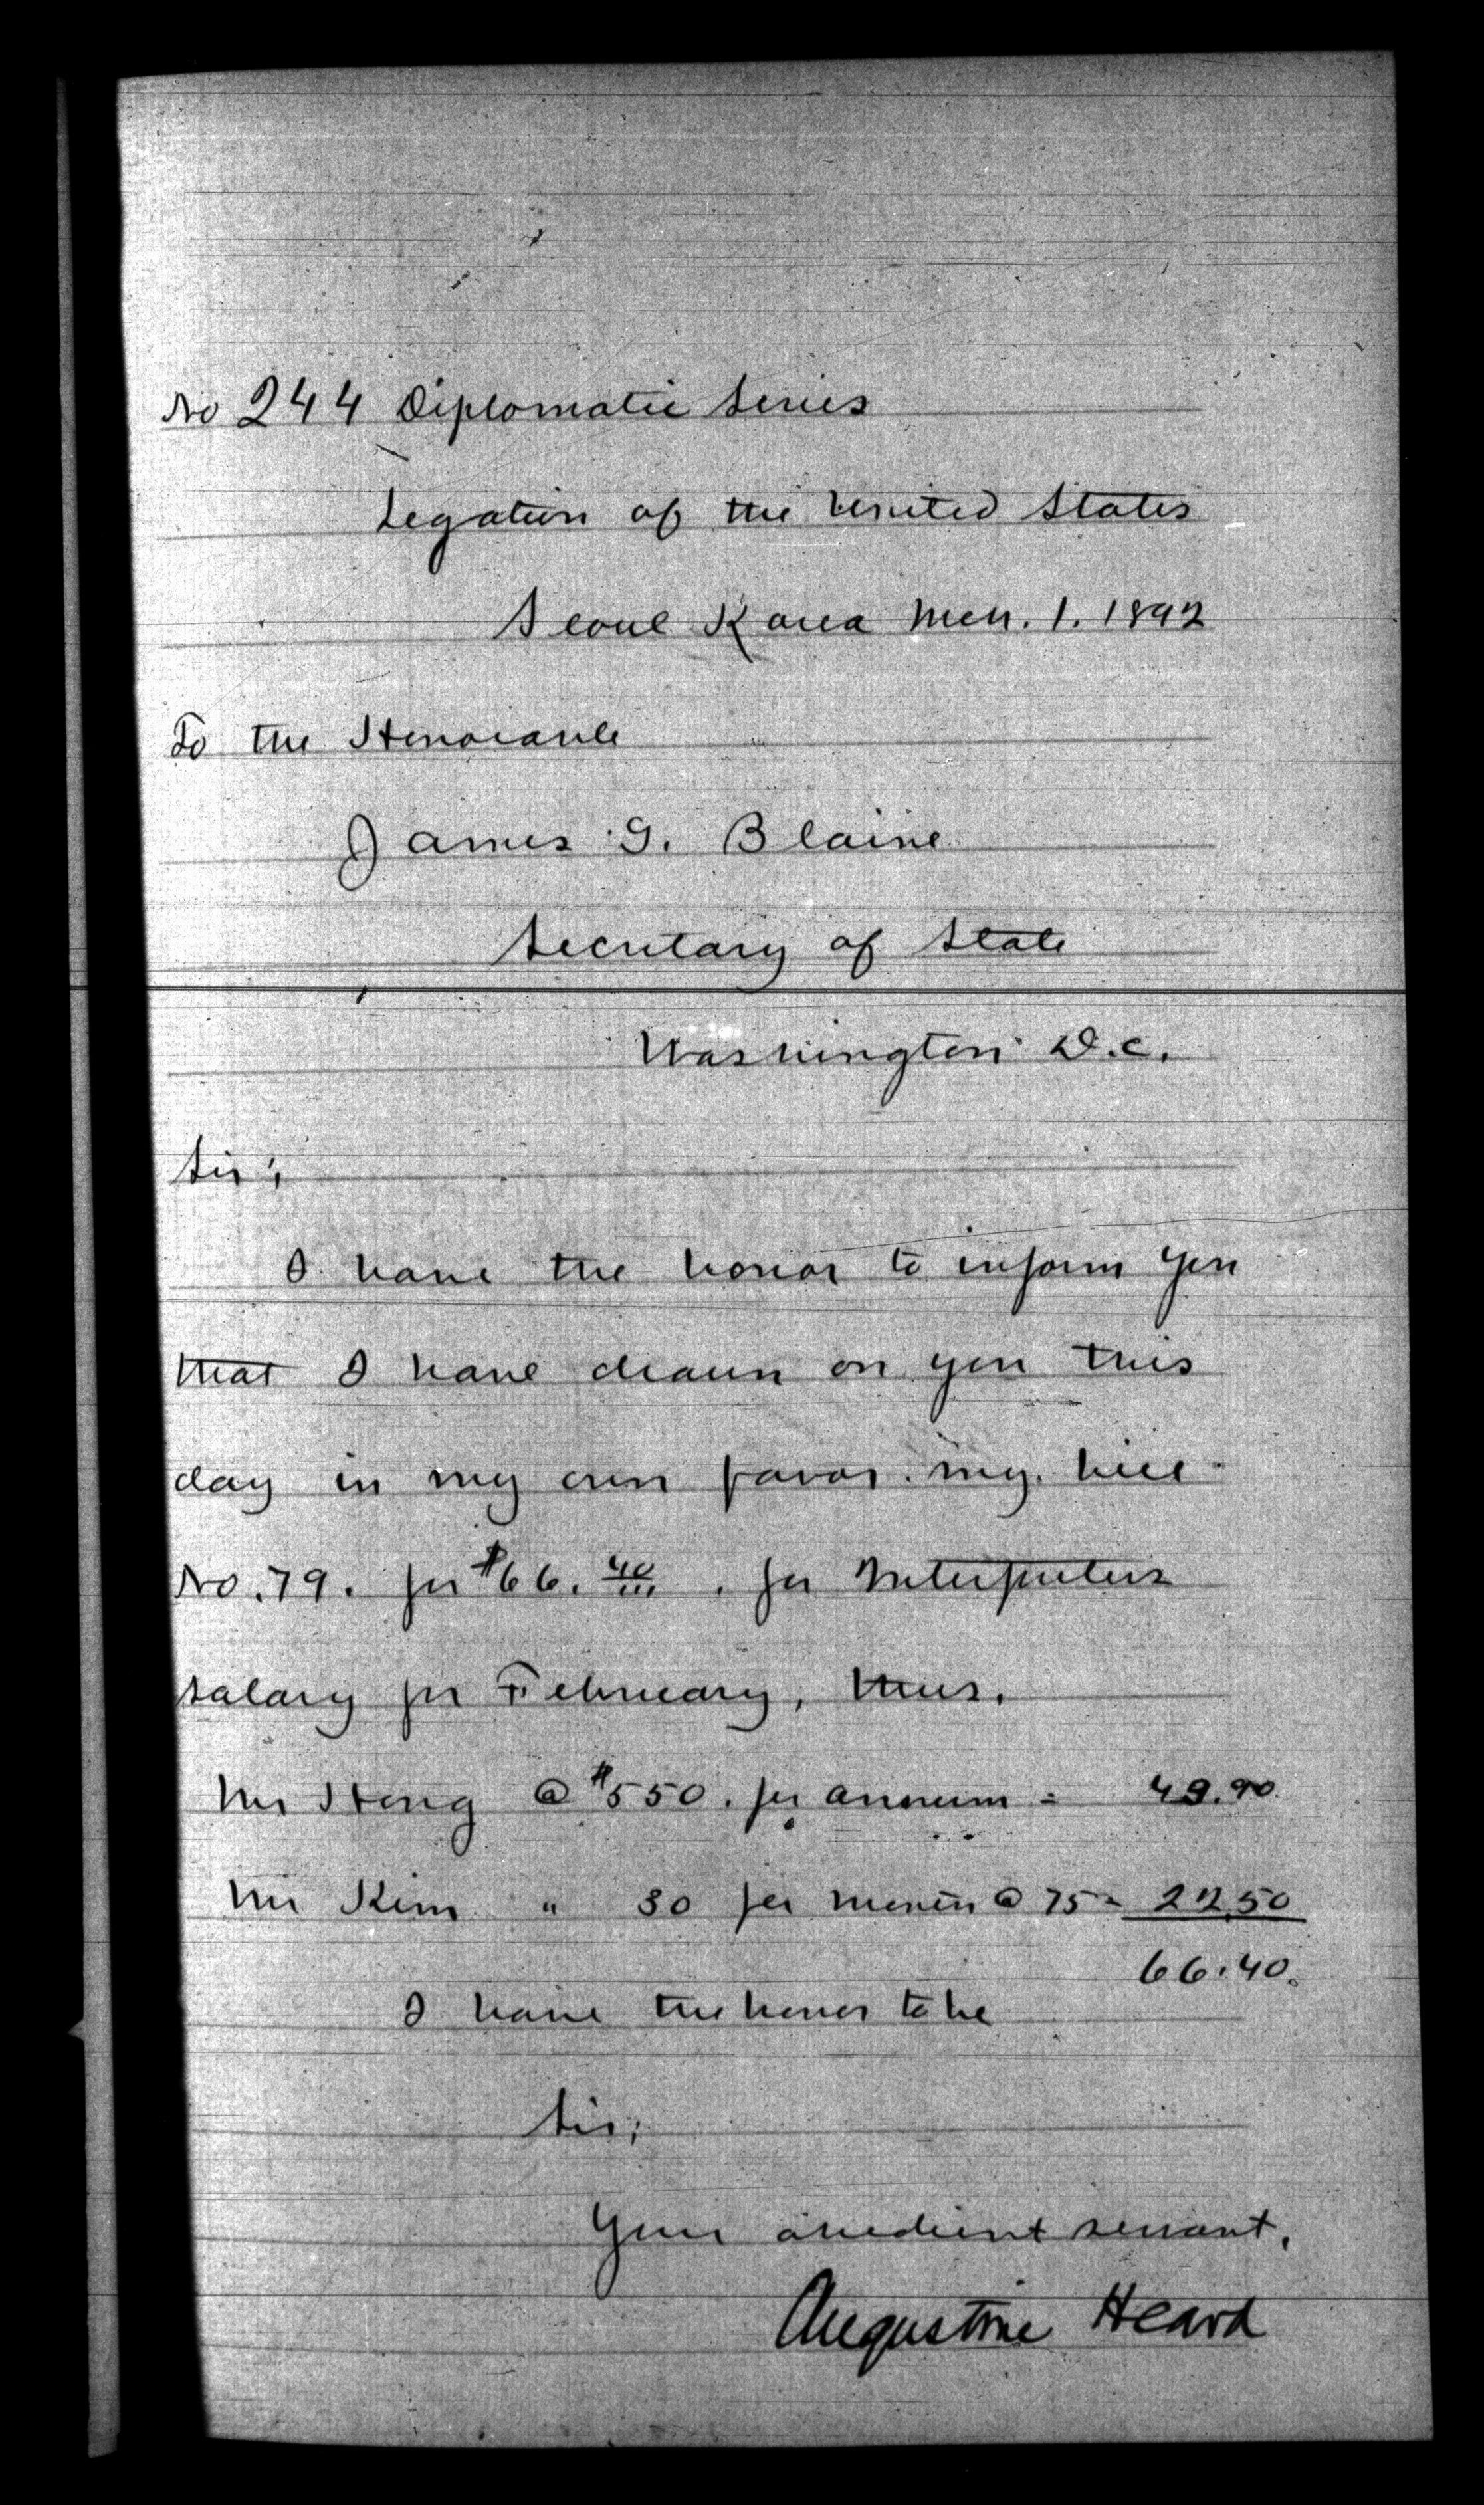 No 244 Diplomatic Series
Legation of the United States
Seoul Korea Mch. 1. 1892
To the Honorable
James G. Blaine
Secretary of State
Washington D.C.
Sir;
I have the honor to inform you
that I have drawn on you this
day in my own favor my bill
No. 79. for $66. 40/100. for Interpreters
salary for February, thus.
Mr Hong @ $550. per annum = 43.90
Mr Kim " 30 per month @ 75 = 22.50
66.40.
I have the honor to be
Sir;
Your obedient servant,
Augustine Heard